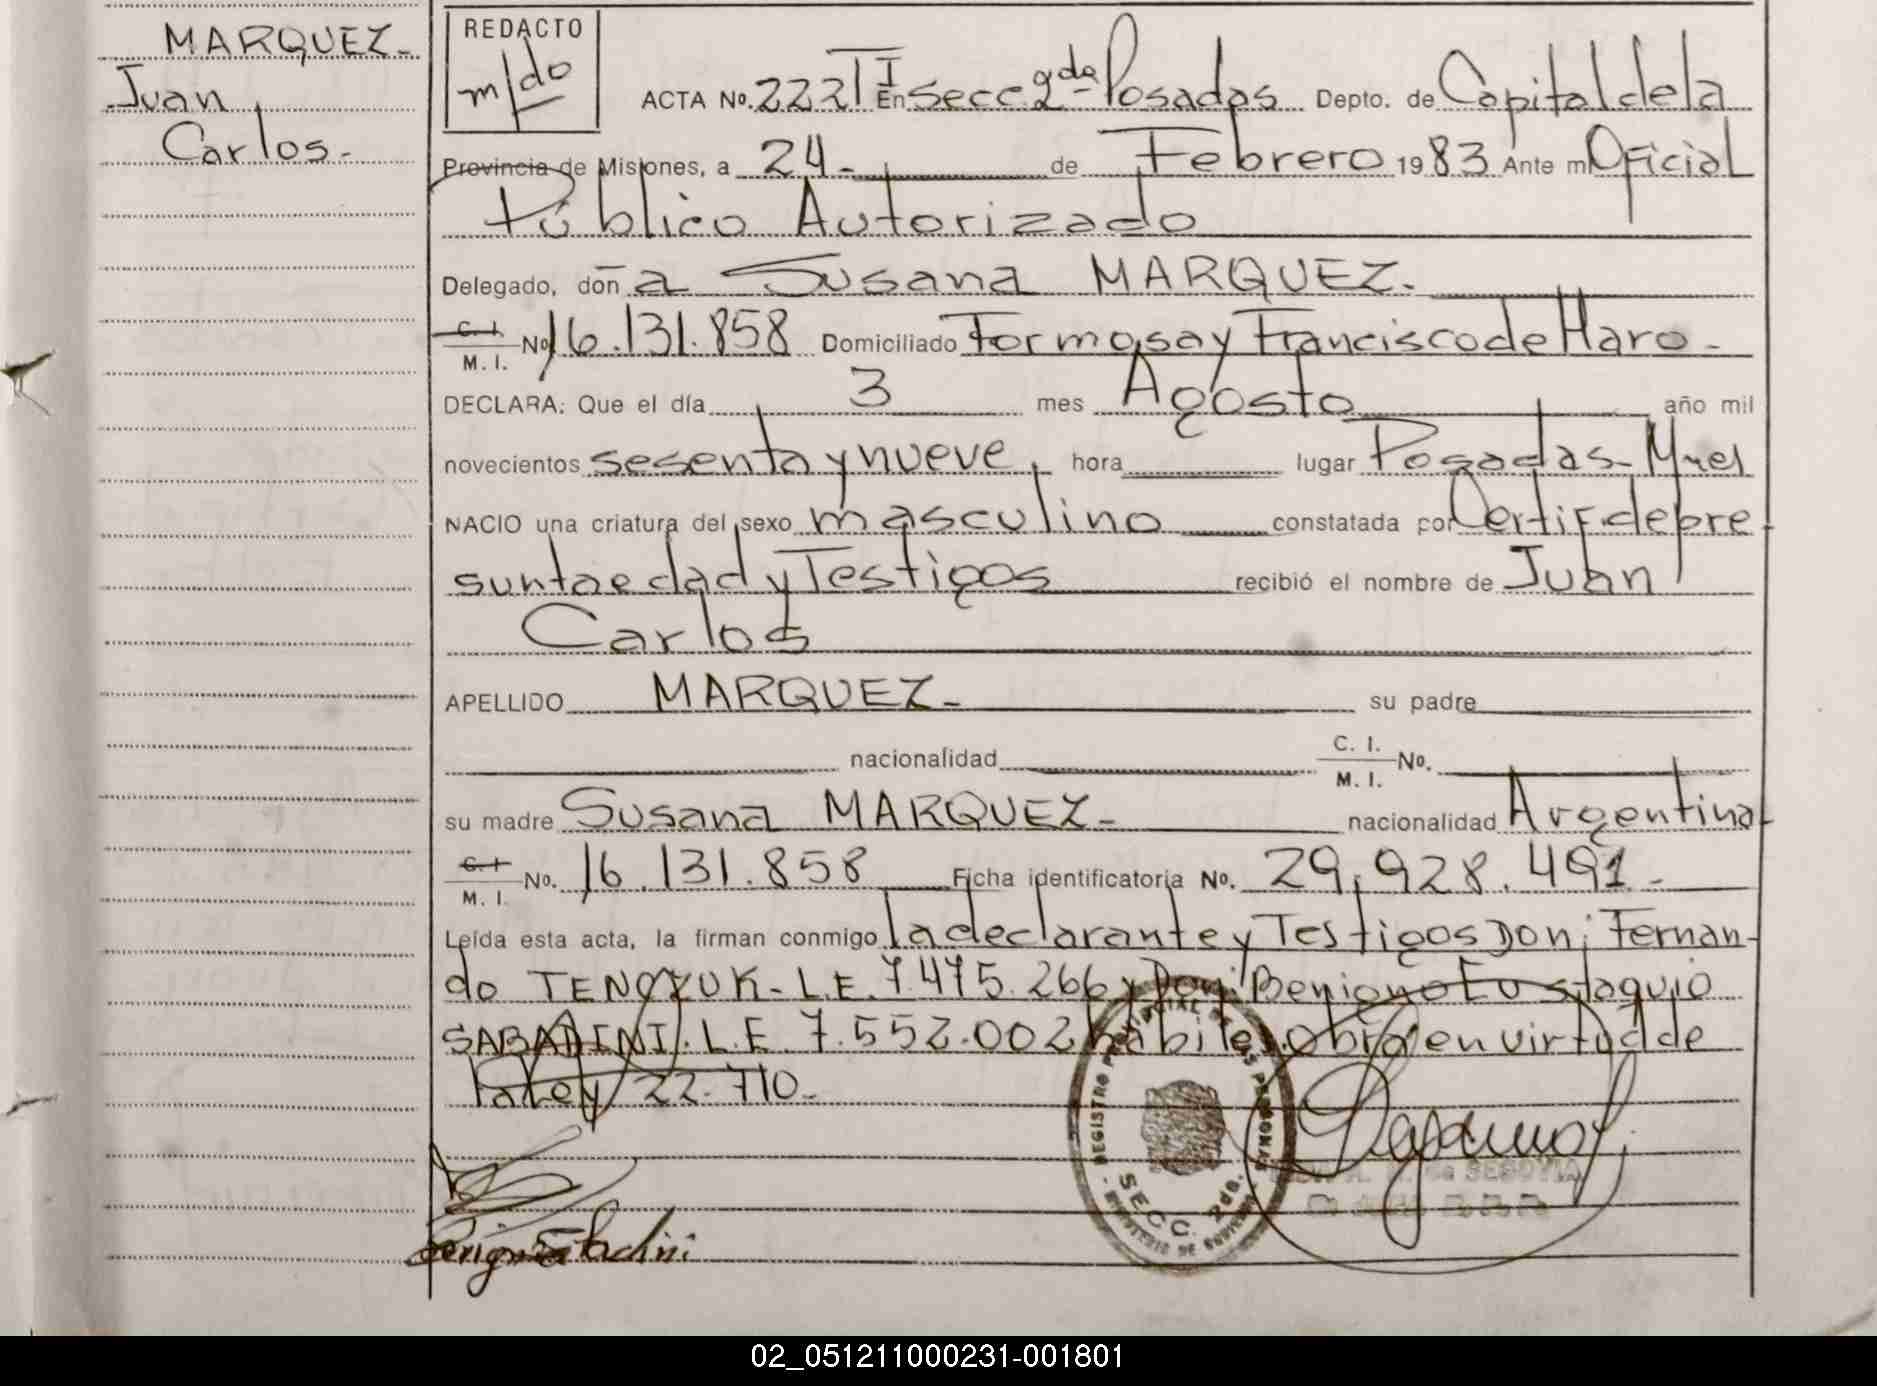 MARQUEZ-
Juan
Carlos.-
REDACTO
m/do
ACTA No. 2221 I En Secc. 2da Posadas Depto. de Capital de la
Provincia de Misiones, a 24.- de Febrero 1983 Ante mi Oficial
Público Autorizado
Delegado, doña Susana MARQUEZ.-
C. I.
M. I. No. 16.131.858 Domiciliado Formosa y Francisco de Haro.-
DECLARA: Que el día 3 mes Agosto año mil
novecientos sesenta y nueve, hora lugar Posadas- Mnes
NACIO una criatura del sexo masculino constatada por Certif. de pre
sunta edad y Testigos recibió el nombre de Juan
Carlos
APELLIDO MARQUEZ- su padre
nacionalidad C. I.
M. I. No.
su madre Susana MARQUEZ- nacionalidad Argentina-
C. I.
M. I. No. 16.131.858 Ficha identificatoria No. 29.928.491-
Leída esta acta, la firman conmigo la declarante y Testigos Don: Fernan-
do TENCZUK- L.E. 7.475.266 y Don: Benigno Eustaquio
SABADINI. L.E. 7.552.002 habiles. Obra en virtud de
la Ley 22.710.-
REGISTRO PROVINCIAL DE LAS PERSONAS
SECC. 2da.
MINISTERIO DE GOBIERNO
de SEGOVIA
02_051211000231-001801